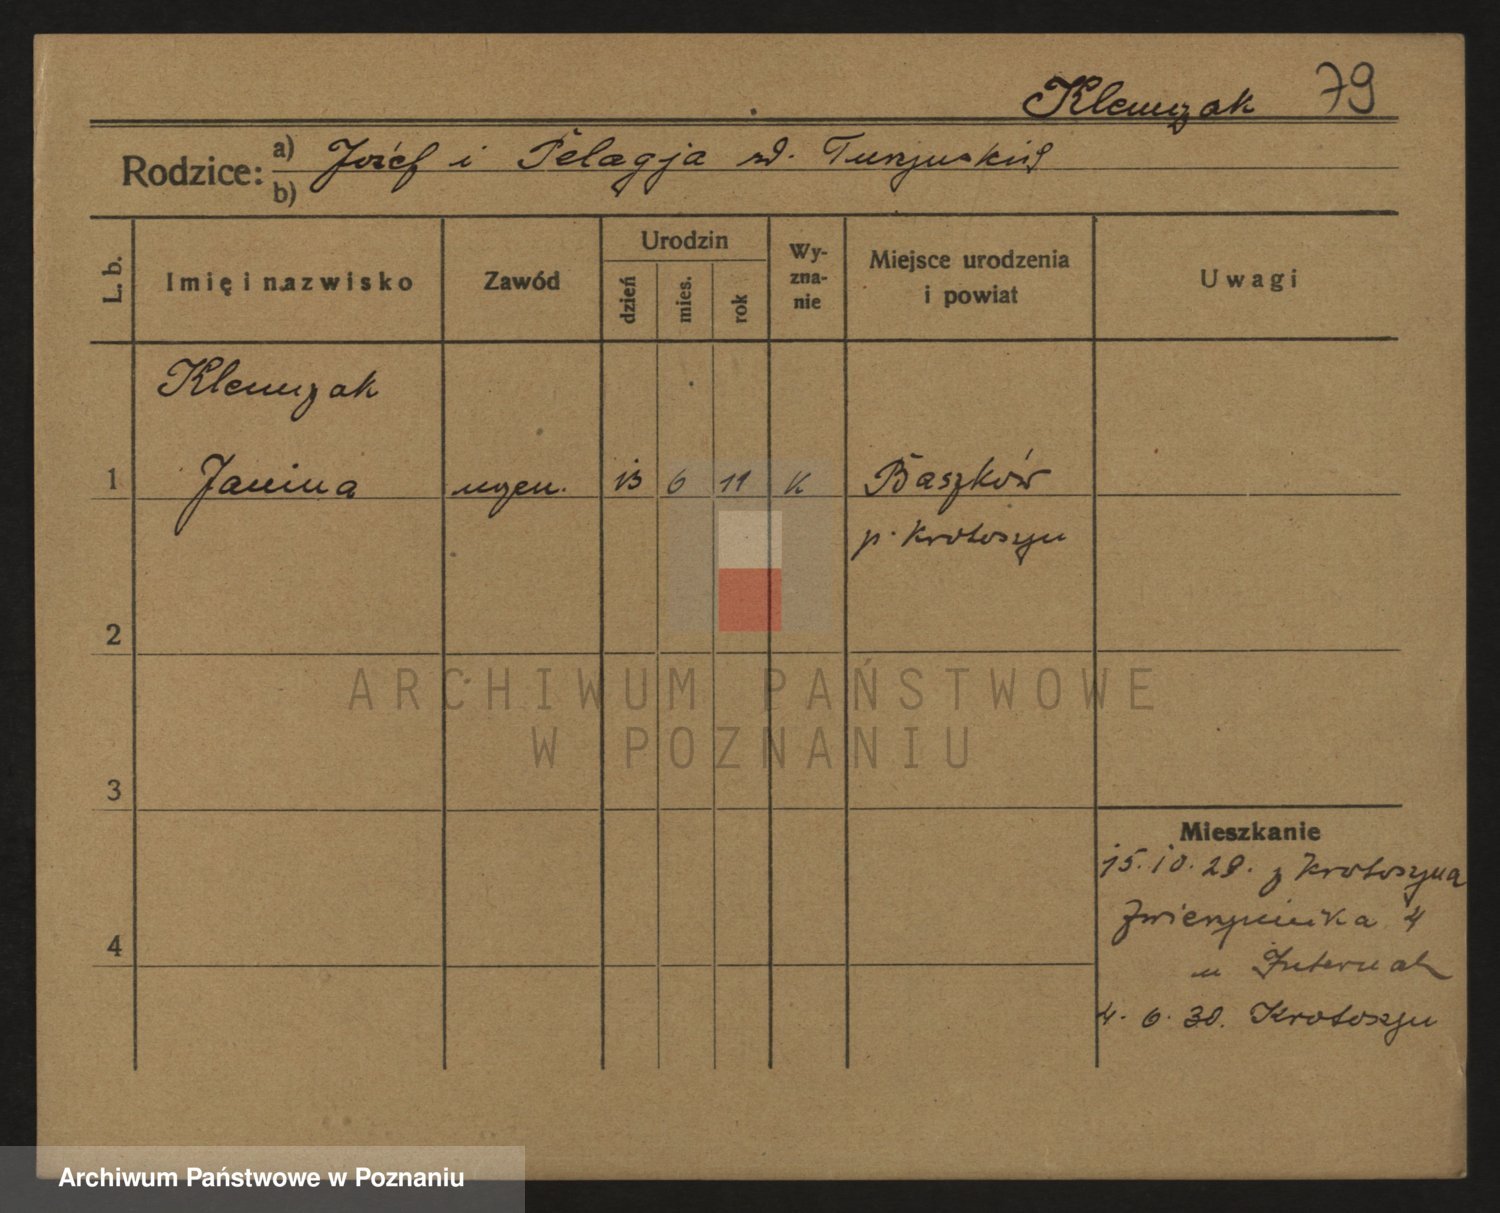 Klemczak 79
Rodzice: a) Józef i Pelagja zd.
b)
L. b. Imię i nazwisko Zawód Urodzin dzień mies. rok Wy-zna-nie Miejsce urodzenia i powiat Uwagi
Klemczak
1 Janina uczen. 13 6 11 K Baszków
p. Krotoszyn
2
ARCHIWUM PAŃSTWOWE
W POZNANIU
3
Mieszkanie
15.10.29. z Krotoszyna
Zwierzyniecka 4
4
u Internat
4. 6. 30. Krotoszyn
Archiwum Państwowe w Poznaniu